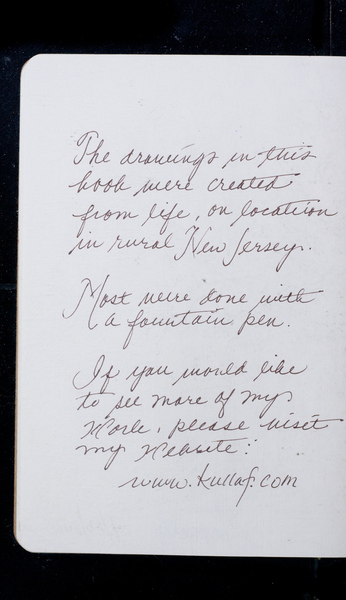 The drawings in this
book were created
from life, on location
in rural New Jersey.
Most were done with
a fountain pen.
If you would like
to see more of my
work, please visit
my website:
www.kullaf.com